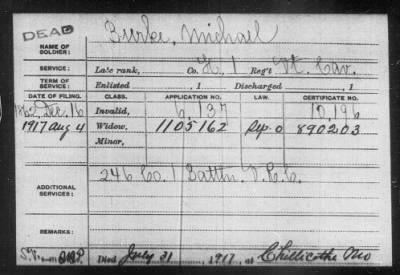 DEAD
NAME OF SOLDIER: Burke, Michael
SERVICE: Late rank, Co. H, 1 Reg't Vt. Cav.
TERM OF SERVICE: Enlisted , 1 Discharged , 1
DATE OF FILING. CLASS. APPLICATION NO. LAW. CERTIFICATE NO.
Dec. 16 Invalid, 10,196
1917 Aug 4 Widow, 1105162 890203
Minor,
ADDITIONAL SERVICES: 246 Co. 1 Battln. V.R.C.
REMARKS:
Died July 31, 1917, at Chillicothe Mo